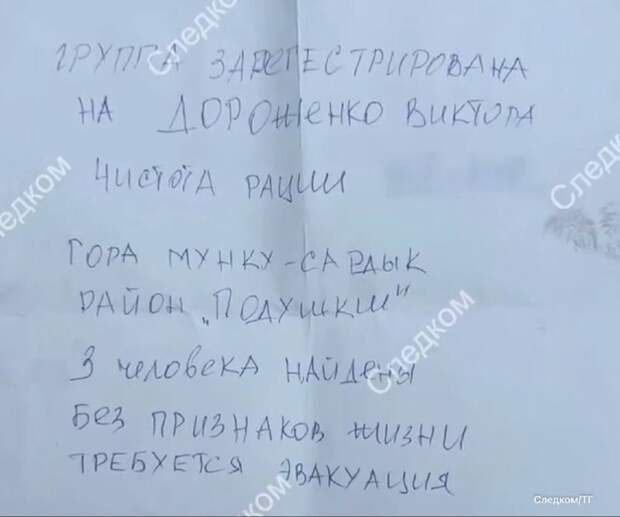 ГРУППА ЗАРЕГЕСТРИРОВАНА
НА ДОРОЖЕНКО ВИКТОРА
ЧИСТОТА РАЦИИ
ГОРА МУНКУ-САРДЫК
РАЙОН „ПОДУШКИ"
3 человека найдены
БЕЗ ПРИЗНАКОВ ЖИЗНИ
ТРЕБУЕТСЯ ЭВАКУАЦИЯ
Следком
Следком
Следком
Следком
Следком
Следком/ТГ